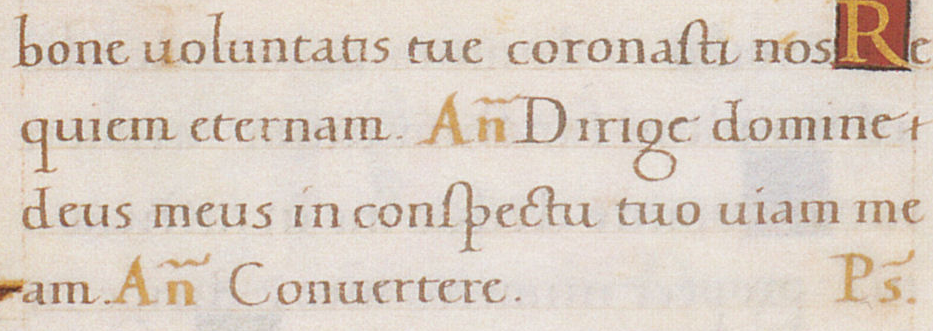 bone uoluntatis tue coronasti nos Re
quiem eternam. Añ Dirige domine
deus meus in conspectu tuo uiam me
am. Añ Conuertere. Ps̄.